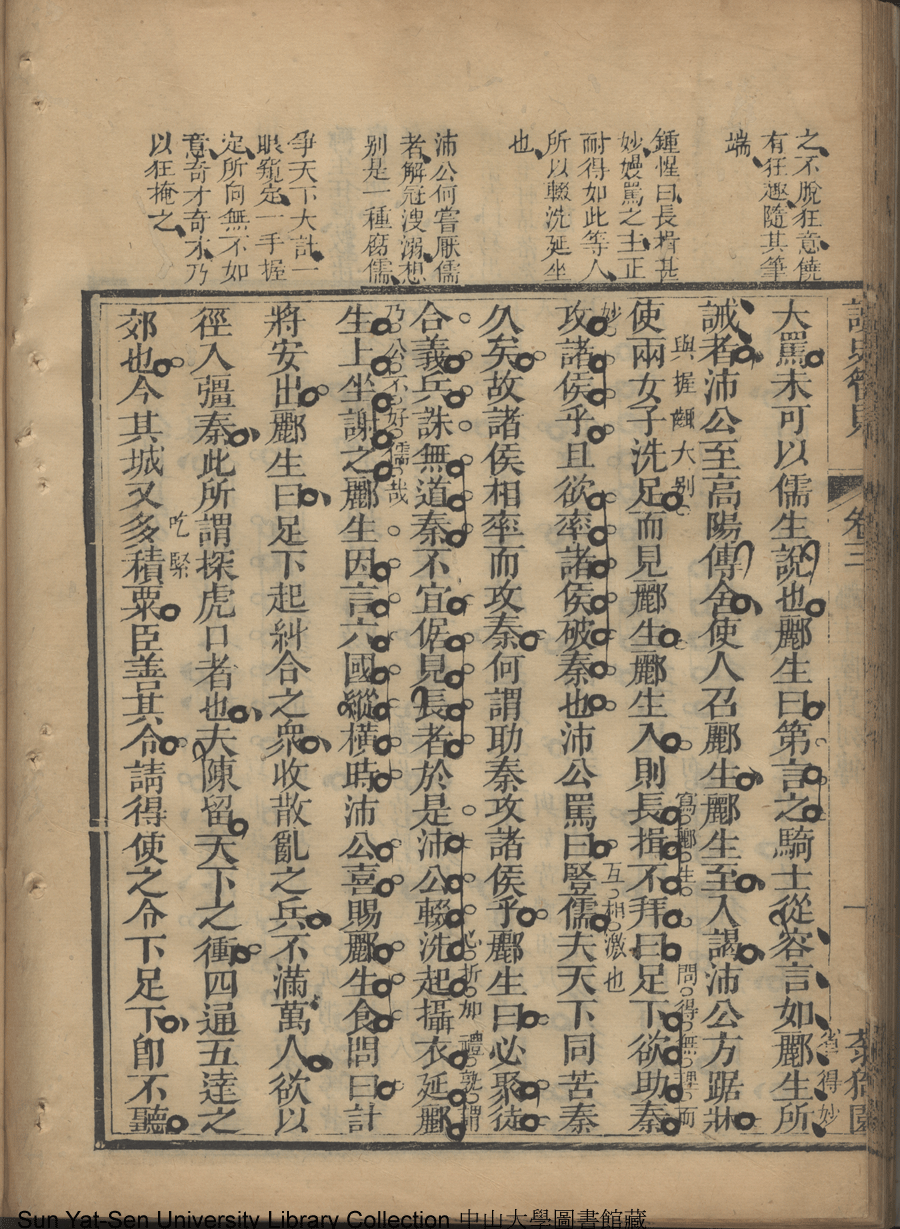 之不脫狂意饒
有狂趣隨其筆
端
鍾惺曰長揖甚
妙嫚罵之主正
耐得如此等人
所以輟洗延坐
也
沛公何嘗厭儒
者解冠溲溺想
別是一種腐儒
爭天下大計一
眼窺定一手握
定所向無不如
意奇才奇才乃
以狂掩之
卷三
一
省得妙
大罵未可以儒生說也酈生曰第言之騎士從容言如酈生所
誡者沛公至高陽傳舍使人召酈生酈生至入謁沛公方踞牀
與握齱大別
寫酈生
問得無理而
使兩女子洗足而見酈生酈生入則長揖不拜曰足下欲助秦
妙
互相激也
攻諸侯乎且欲率諸侯破秦也沛公罵曰豎儒夫天下同苦秦
久矣故諸侯相率而攻秦何謂助秦攻諸侯乎酈生曰必聚徒
心折加禮孰謂
合義兵誅無道秦不宜倨見長者於是沛公輟洗起攝衣延酈
乃公不好儒哉
生上坐謝之酈生因言六國縱橫時沛公喜賜酈生食問曰計
將安出酈生曰足下起糾合之衆收散亂之兵不滿萬人欲以
徑入彊秦此所謂探虎口者也夫陳留天下之衝四通五達之
吃緊
郊也今其城又多積粟臣善其令請得使之令下足下卽不聽
Sun Yat-Sen University Library Collection 中山大學圖書館藏